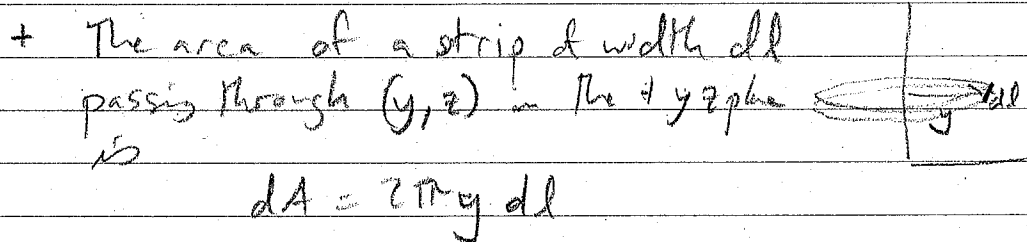 + The area of a strip of width dl
passing through (y, z) in the + yz plane
y dl
is
dA = 2π y dl